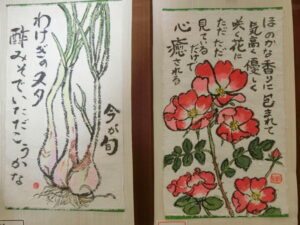 わけぎのヌタ
酢みそでいただこうかな
今が旬
ほのかな香りに包まれて
気高く優しく
咲く花
ただただ
見ているだけで
心癒される